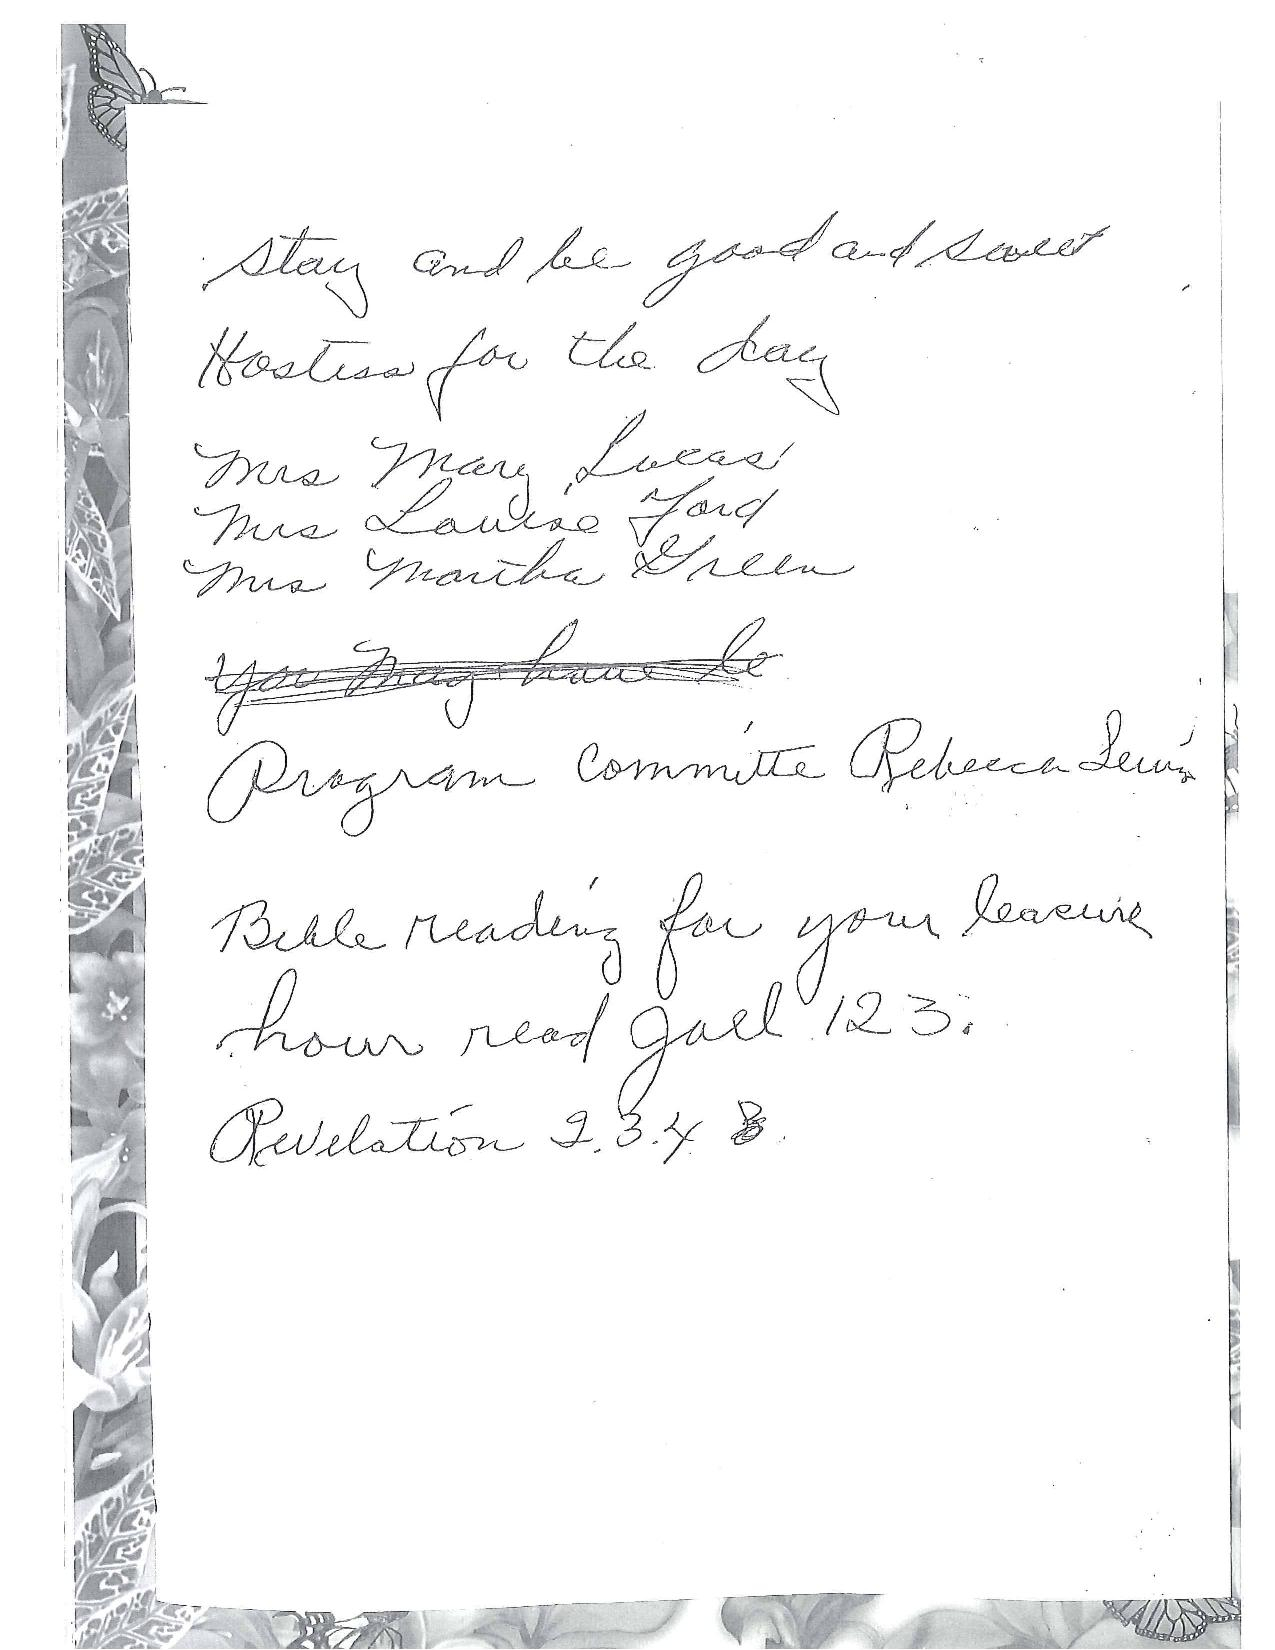 Stay and be good and sweet
Hostess for the day
Mrs Mary Lucas
Mrs Louise Ford
Mrs Martha Green
You May have le
Program committe Rebecca Lewis
Bible reading for your leasure
hour read Joel 123.
Revelation 2.3.4